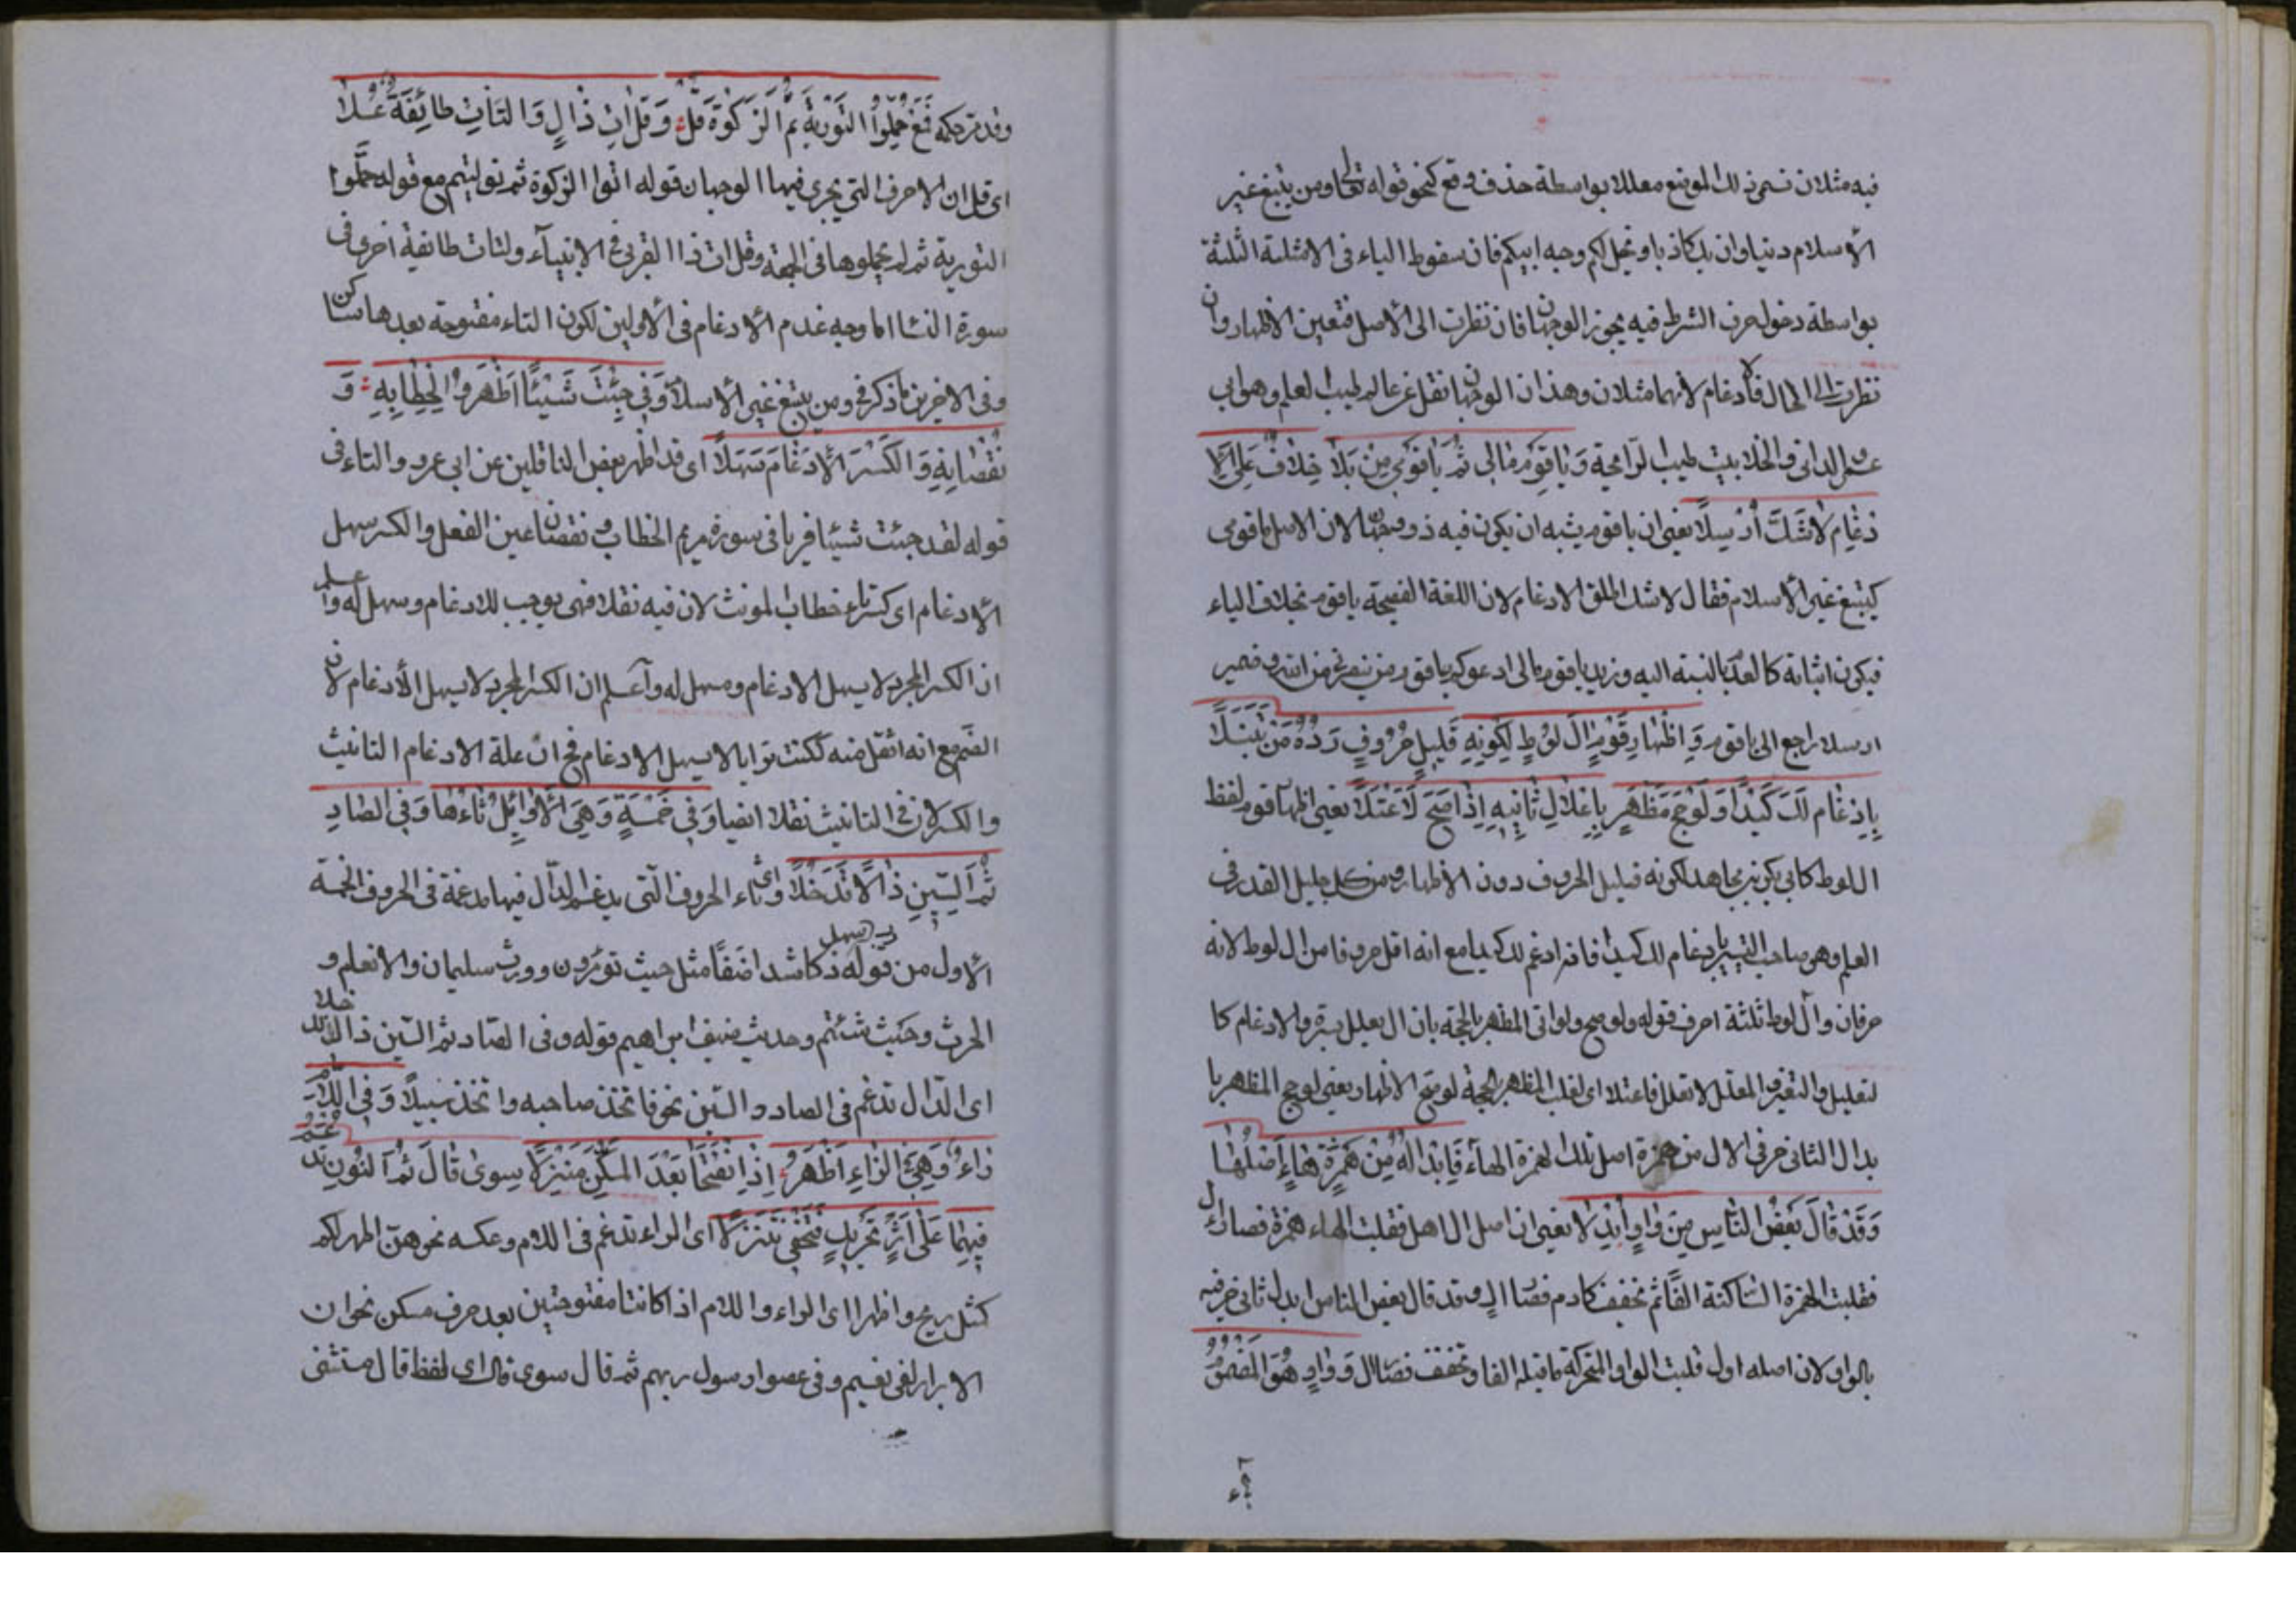 فيه مثلان تسمى ذلك الموضع معللا بواسطة حذف وقع كنحو قوله تعالى ومن يبتغ غير
الاسلام دينا وان يك كاذبا ويخل لكم وجه ابيكم فان سقوط الياء فى الامثلة الثلثة
بواسطة دخول حرف الشرط فيه يجوز الوجهان فان نظرت الى الاصل فتعين الاظهار وان
نظرت الى الحال فالادغام لانهما مثلان وهذان الوجهان نقل عن عالم طيب لعلم وهو ابى
عمرو الدانى والخلا بيت طيب الرائحة وَيَا قَوْمِ مَالِى ثُمَّ يَا قَوْمِ مَنْ بِلَا خِلَافٍ عَلَى الْاِ
دْغَامِ لَا شَكَّ اُرْسِلَا يعنى ان يا قوم يشبه ان يكون فيه ذو وجهان لان الاصل يا قومى
كيبتغ غير الاسلام فقال لا شك اطلق الادغام لان اللغة الفصيحة يا قوم بخلاف الياء
فيكون اثباته كالعدم بالنسبة اليه ويريد يا قوم مالى ادعوكم يا قوم من ينصرنى من الله وضمير
ارسلا راجع الى يا قوم وَاِظْهَارُ قَوْمٍ آلَ لُوطٍ لِكَوْنِهِ قَلِيلَ حُرُوفٍ رَدَّهُ مَنْ تَنَبَّلَا
بِاِدْغَامِ لَكَ كَيْدًا وَلَوْ حَجَّ مُظْهِرٌ بِاِعْلَالِ ثَانِيهِ اِذَا صَحَّ لَاعْتَلَا يعنى اظهار قوم لفظ
ال لوط كابى بكر بن مجاهد لكونه قليل الحروف دون الاظهار من كل جليل القدر فى
العلم وهو صاحب التيسير بادغام لك كيدا فانه ادغم لك كيدا مع انه اقل حروفا من ال لوط لانه
حرفان وآل لوط ثلثة احرف قوله ولو صح ولو اتى المظهر بالحجة بان ال يعلل والادغام كا
لتعليل والتغير المعتل لا تعلل فاعتلا اى لغلب المظهر بالحجة لو صح الاظهار يعنى لو حج المظهر با
بدال الثانى حرفى الال من همزة اصل تلك الهمزة الهاء فَاِبْدَالُهُ مِنْ هَمْزَةٍ هَاءٌ اَصْلُهَا
وَقَدْ قَالَ بَعْضُ النَّاسِ مِنْ وَاوٍ اُبْدِلَا يعنى ان اصل ال اهل فقلبت الهاء همزة فصار اءل
فقلبت الهمزة الساكنة الفا ثم تخفف كادم فصار ال وقد قال بعض الناس ابدل ثانى حرفيه
بالواو لان اصله اول قلبت الواو المتحركة ما قبله الفا وتخفف فصار ال وَوَاوُ هُوَ الْمَضْمُومُ
وقد مر حكمه فَمَعْ حُمِّلُوا التَّوْرٰيةَ ثُمَّ الزَّكٰوةَ قُلْ وَقُلْ اٰتِ ذَا الٍ وَالتَأتِ طَائِفَةٌ عَلَا
اى قل ان الاحرف التى يجرى فيها الوجهان قوله اتوا الزكوة ثم توليتم مع قوله حملوا
التورية ثم لم يحملوها فى الجمعة وقل ات ذا القربى فى الانبياء ولتات طائفة اخرى فى
سورة النسا اما وجه عدم الادغام فى الاولين لكون التاء مفتوحة بعدها ساكن
وفى الاخرين ما ذكر فى ومن يبتغ غير الاسلام وَفِى جِئْتِ شَيْئًا اَظْهَرُوا لِخِطَابِهِ وَ
نُقْصَانِهِ وَالْكَسْرُ الْاِدْغَامَ سَهَّلَا اى قد اظهر بعض الناقلين عن ابى عمرو والتاء فى
قوله لقد جئت شيئا فريا فى سورة مريم الخطاب ونقصان عين الفعل والكسر سهل
الادغام اى كسر تاء خطاب المونث لان فيه نقلا فهى يوجب للادغام وسهل له واعلم
ان الكسر المجرد لا يسهل الادغام وسهل له واعلم ان الكسر المجرد لا يسهل الادغام لان
الضم مع انه اثقل منه ككنت ترابا لا يسهل الادغام فى ان علة الادغام التانيث
والكسر لان فى التانيث نقلا ايضا وَفِى خَمْسَةٍ وَهِىَ الْاَوَائِلُ ثَاءُهَا وَفِى الصَّادِ
ثُمَّ السِّينِ ذَالٌ تَدَخَّلَا اى ثاء الحروف التى يدغم الدال فيها مدغمة فى الحروف الخمسة
الاول من قوله ترب سهل ذكا شذا ضفا مثل حيث تؤمرون وورث سليمان والانعام و
الحرث وحيث شئتم وحديث ضيف ابراهيم قوله وفى الصاد ثم السين ذال تدخلا
اى الذال تدغم فى الصاد والسين نحو فاتخذ صاحبه واتخذ سبيلا وَفِى اللَّامِ
رَاءٌ وَهِىَ فِى الرَّاءِ اُظْهِرَا اِذَا انْفَتَحَا بَعْدَ الْمُسَكَّنِ مُنْزَلَا سِوٰى قَالَ ثُمَّ النُّونُ تُدْغَمُ
فِيهِمَا عَلٰى اِثْرِ تَحْرِيكٍ اى الراء تدغم فى اللام وعكسه نحو هن اطهر لكم
كمثل ريح واظهرا اى الراء واللام اذا كانتا مفتوحتين بعد حرف مسكن نحو ان
الابرار لفى نعيم وفى عصوا رسول ربهم ثم قال سوى قال اى لفظ قال مستثنى